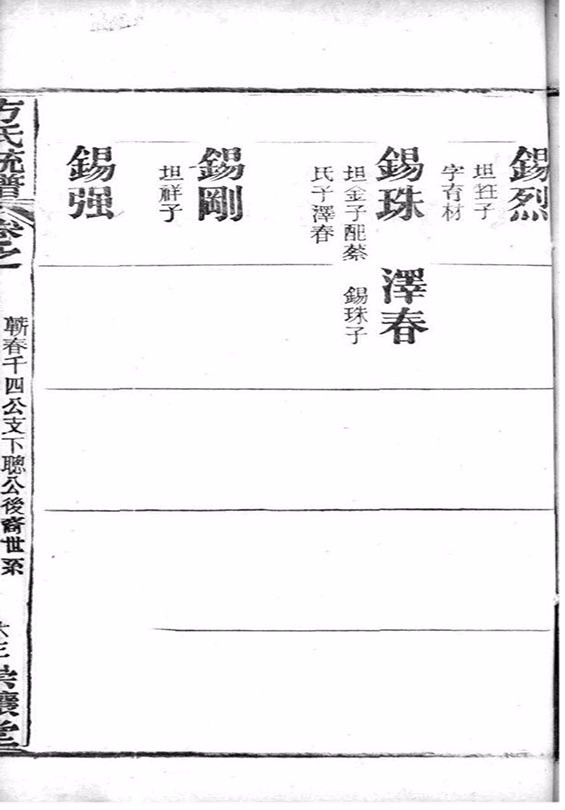 錫烈
坦鈺子
字有材
錫珠
坦金子配蔡
氏子澤春
澤春
錫珠子
錫剛
坦祥子
錫强
方氏統譜
卷之
蘄春千四公支下聰公後裔世系